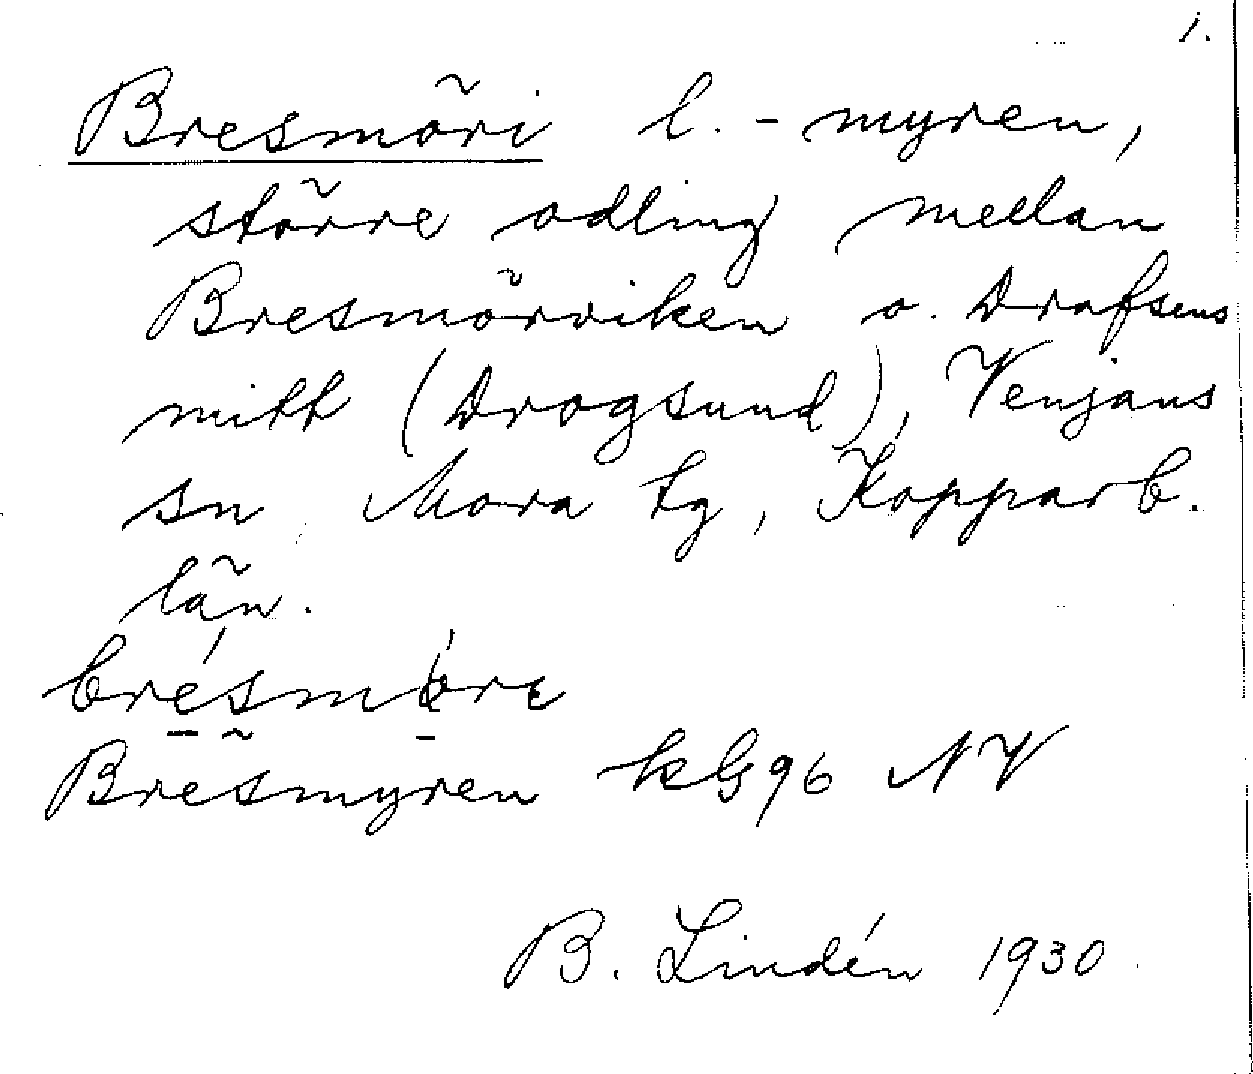 1.
Bresmöri l. -myren,
större odling mellan
Bresmörviken o. Drafsens
mitt (Drogsund), Venjans
sn, Mora tg, Kopparb.
län.
Bresmyren kG96 NV
B. Lindén 1930